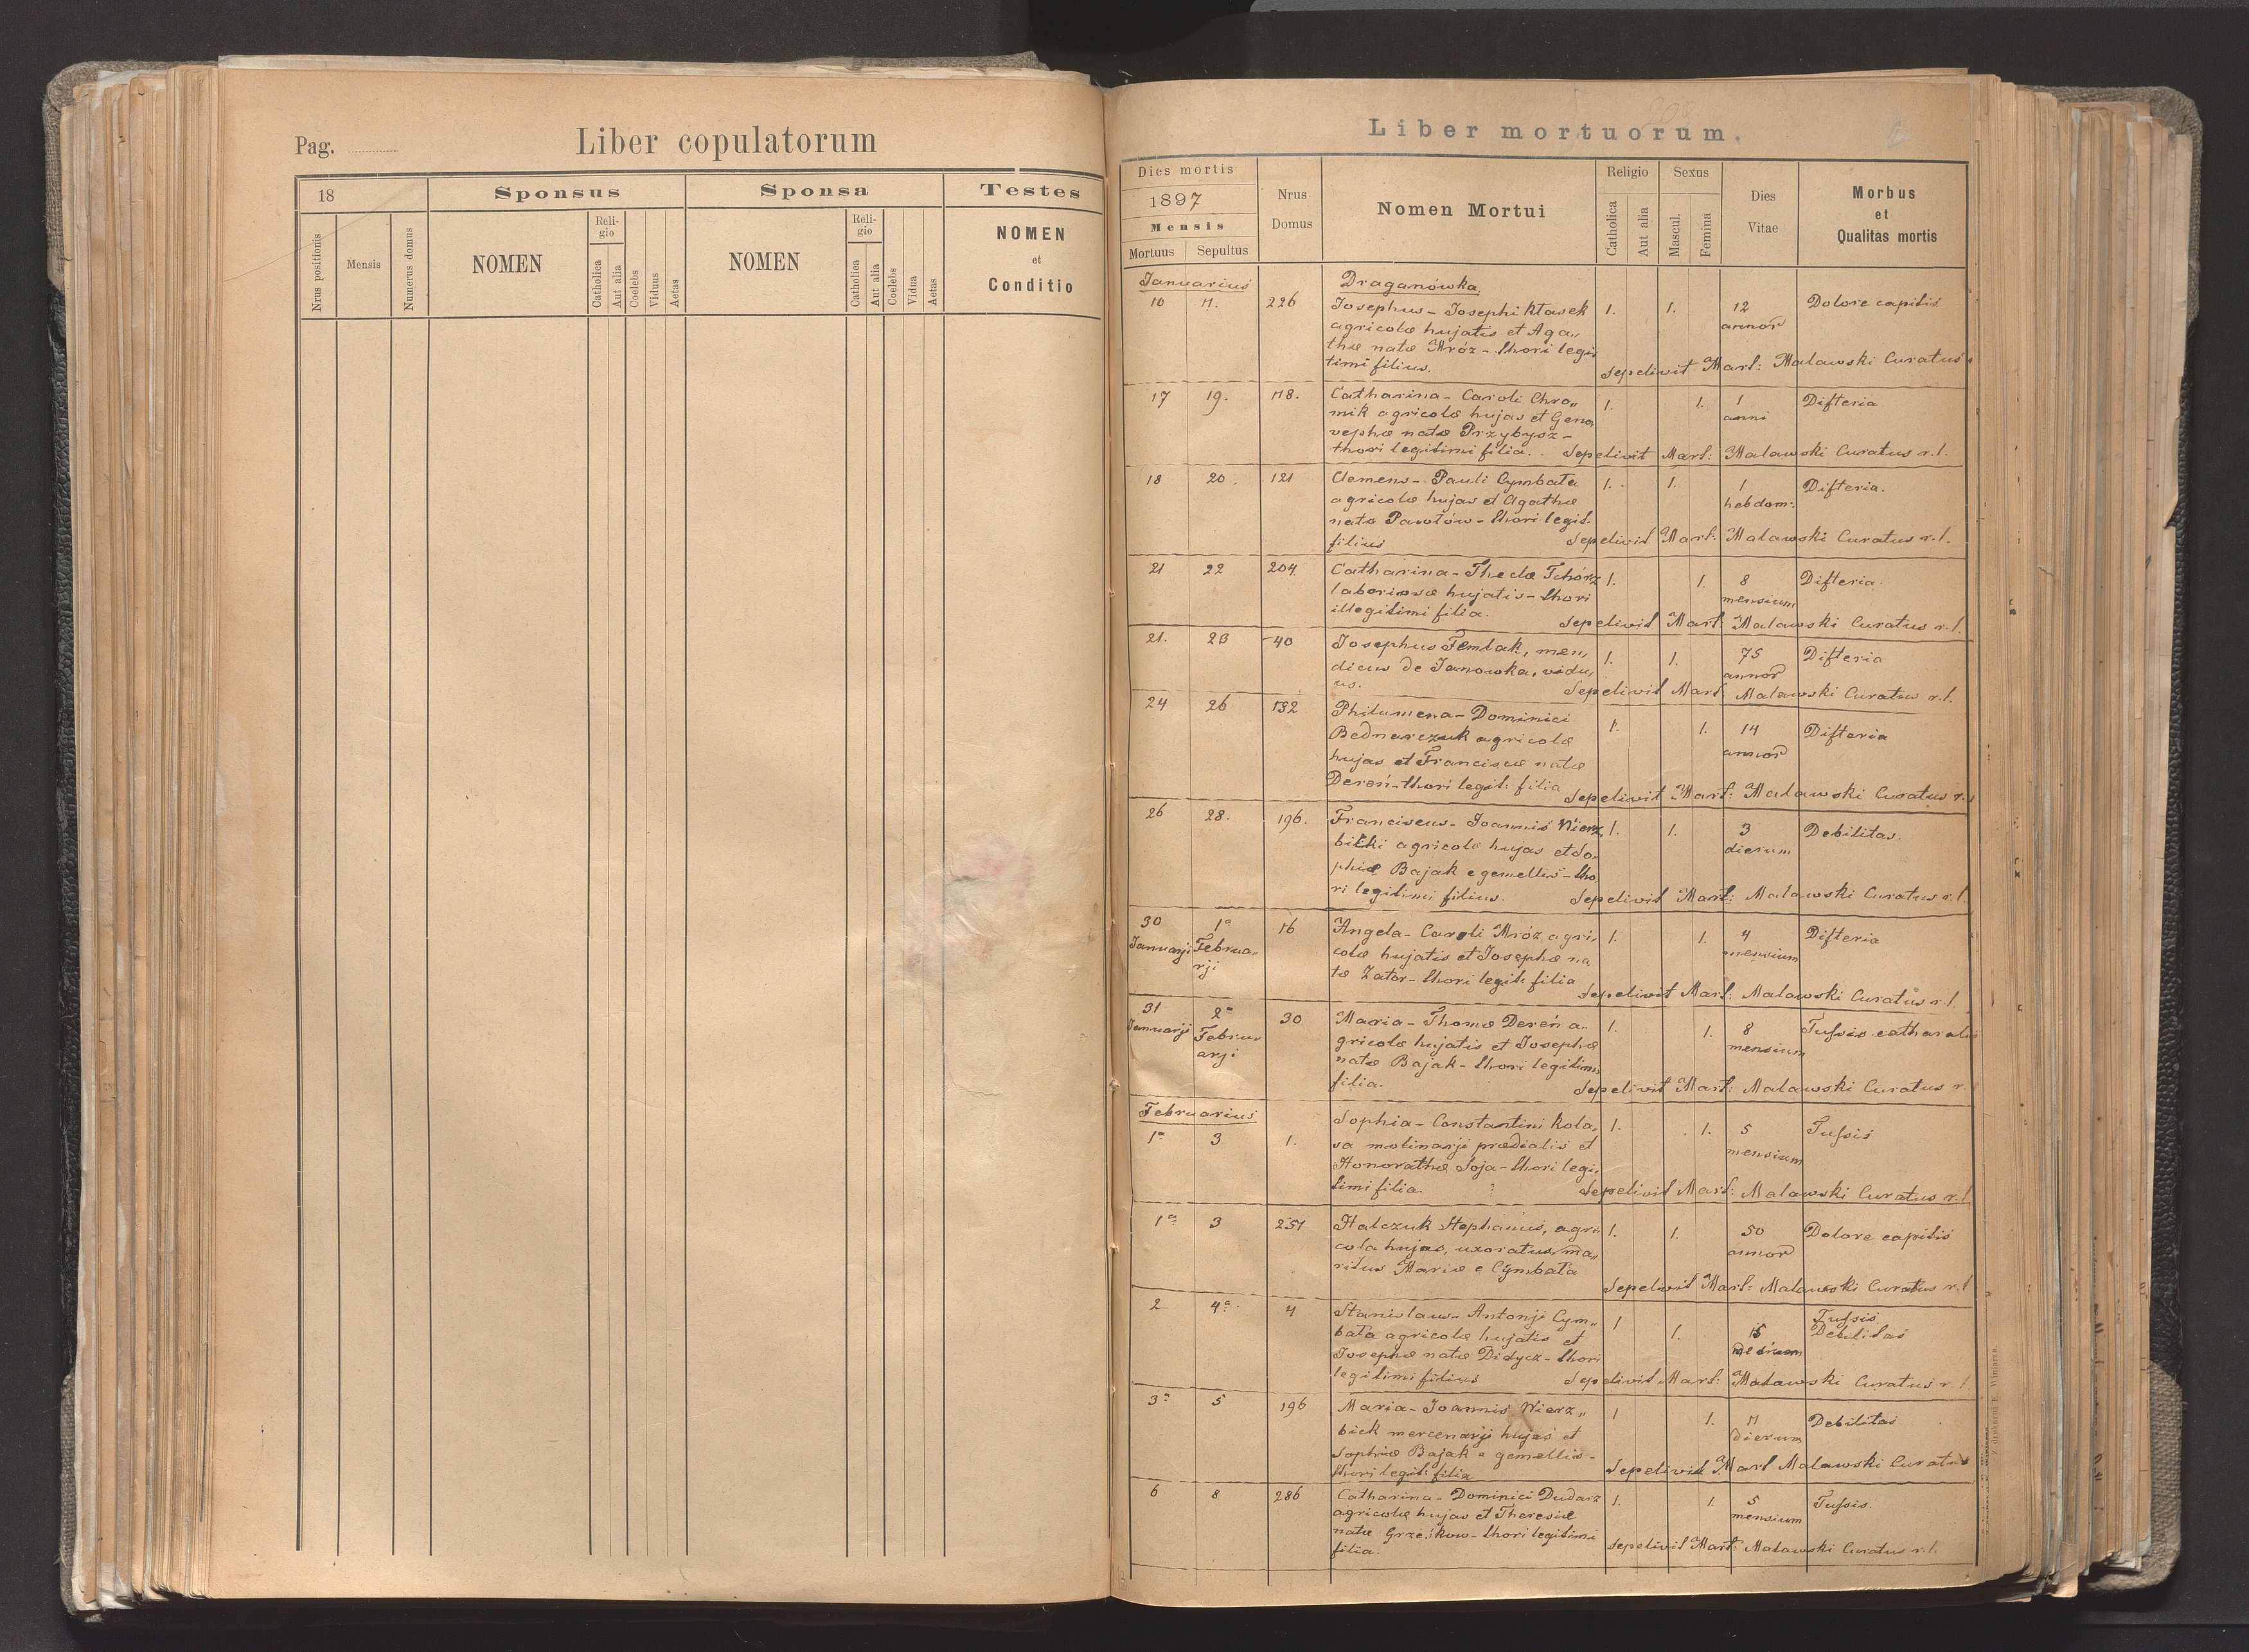 Pag.
Liber copulatorum
18
Sponsus
Sponsa
Testes
Nrus positionis
Mensis
Numerus domus
NOMEN
Reli-
gio
Catholica
Aut alia
Coelebs
Viduus
Aetas
NOMEN
Reli-
gio
Catholica
Aut alia
Coelebs
Vidua
Aetas
NOMEN
et
Conditio
Liber mortuorum.
Dies mortis
1897
Mensis
Mortuus
Sepultus
Nrus
Domus
Nomen Mortui
Religio
Catholica
Aut alia
Sexus
Mascul.
Femina
Dies
Vitae
Morbus
et
Qualitas mortis
Januarius
Draganówka
10 11. 226 Josephus - Josephi Ktasek 1. 1. 12 Dolore capitis
agricolæ hujatis et Aga„ annor
thæ natæ Mróz - thori legi„
timi filius. Sepelivit Mart: Malawski Curatus
17 19. 118. Catharina - Caroli Chro„ 1. 1. 1 Difteria
mik agricolæ hujas et Geno„ anni
vephæ natæ Przybysz -
thori legitimi filia. Sepelivit Mart: Malawski Curatus r.l.
18 20. 121 Clemens - Pauli Cymbała 1. 1. 1 Difteria.
agricolæ hujas et Agathæ hebdom:
natæ Pawłów - thori legit.
filius Sepelivit Mart: Malawski Curatus r.l.
21 22 204. Catharina - Theclæ Tchórz 1. 1. 8 Difteria.
laboriosæ hujatis - thori mensium
illegitimi filia. Sepelivit Mart Malawski Curatus r.l.
21. 23 40 Josephus Femlak, men„ 1. 1. 75 Difteria
dicus de Janowka, vidu„ annor
us. Sepelivit Mart Malawski Curatus r.l.
24 26 132 Philumena - Dominici 1. 1. 14 Difteria
Bednarczuk agricolæ annor
hujas et Franciscæ natæ
Dereń - thori legit: filia Sepelivit Mart: Malawski Curatus r.
26 28. 196. Franciscus - Joannis Wierz„ 1. 1. 3 Debilitas.
bicki agricolæ hujas et So„ dierum
phiæ Bajak e gemellis - tho„
ri legitimi filius. Sepelivit Mart: Malawski Curatus r.l.
30 1a 16 Angela - Caroli Mróz agri„ 1. 1. 4 Difteria
Januarji Februa- colæ hujatis et Josephæ na mensium
rji tæ Zator - thori legit: filia
Sepelivit Mart: Malawski Curatus r.l.
31 2a 30 Maria - Thomæ Dereń a„ 1. 1. 8 Tussis catharalis
Januarji Februarji gricolæ hujatis et Josephæ mensium
natæ Bajak - thori legitimi
filia. Sepelivit Mart: Malawski Curatus r.
Februarius
1a 3 1. Sophia - Constantini Kola„ 1. 1. 5 Tussis
sa molinarji prædialis et mensium
Honorathæ Soja - thori legi„
timi filia. Sepelivit Mart: Malawski Curatus r.l
1a 3 251 Halczuk Stephanus, agri„ 1. 1. 50 Dolore capitis
cola hujas, uxoratus, ma„ annor
ritus Mariæ e Cymbała
Sepelivit Mart: Malawski Curatus r.l
2 4a 4 Stanislaus - Antonji Cym„ 1 1. 15 Tussis
bała agricolæ hujatis et Debilitas
Josephæ natæ Didycz - thori
legitimi filius Sepelivit Mart: Malawski Curatus r.l
3a 5 196 Maria - Joannis Wierz„ 1 1. 11 Debilitas
bick mercenarji hujas et dierum
Sophiæ Bajak e gemellis -
thori legit: filia Sepelivit Mart Malawski Curatus
6 8 286 Catharina - Dominici Dudarz 1. 1. 5 Tussis.
agricolæ hujas et Theresiæ mensium
natæ Grześkow - thori legitimi
filia. Sepelivit Mart: Malawski Curatus r.l.